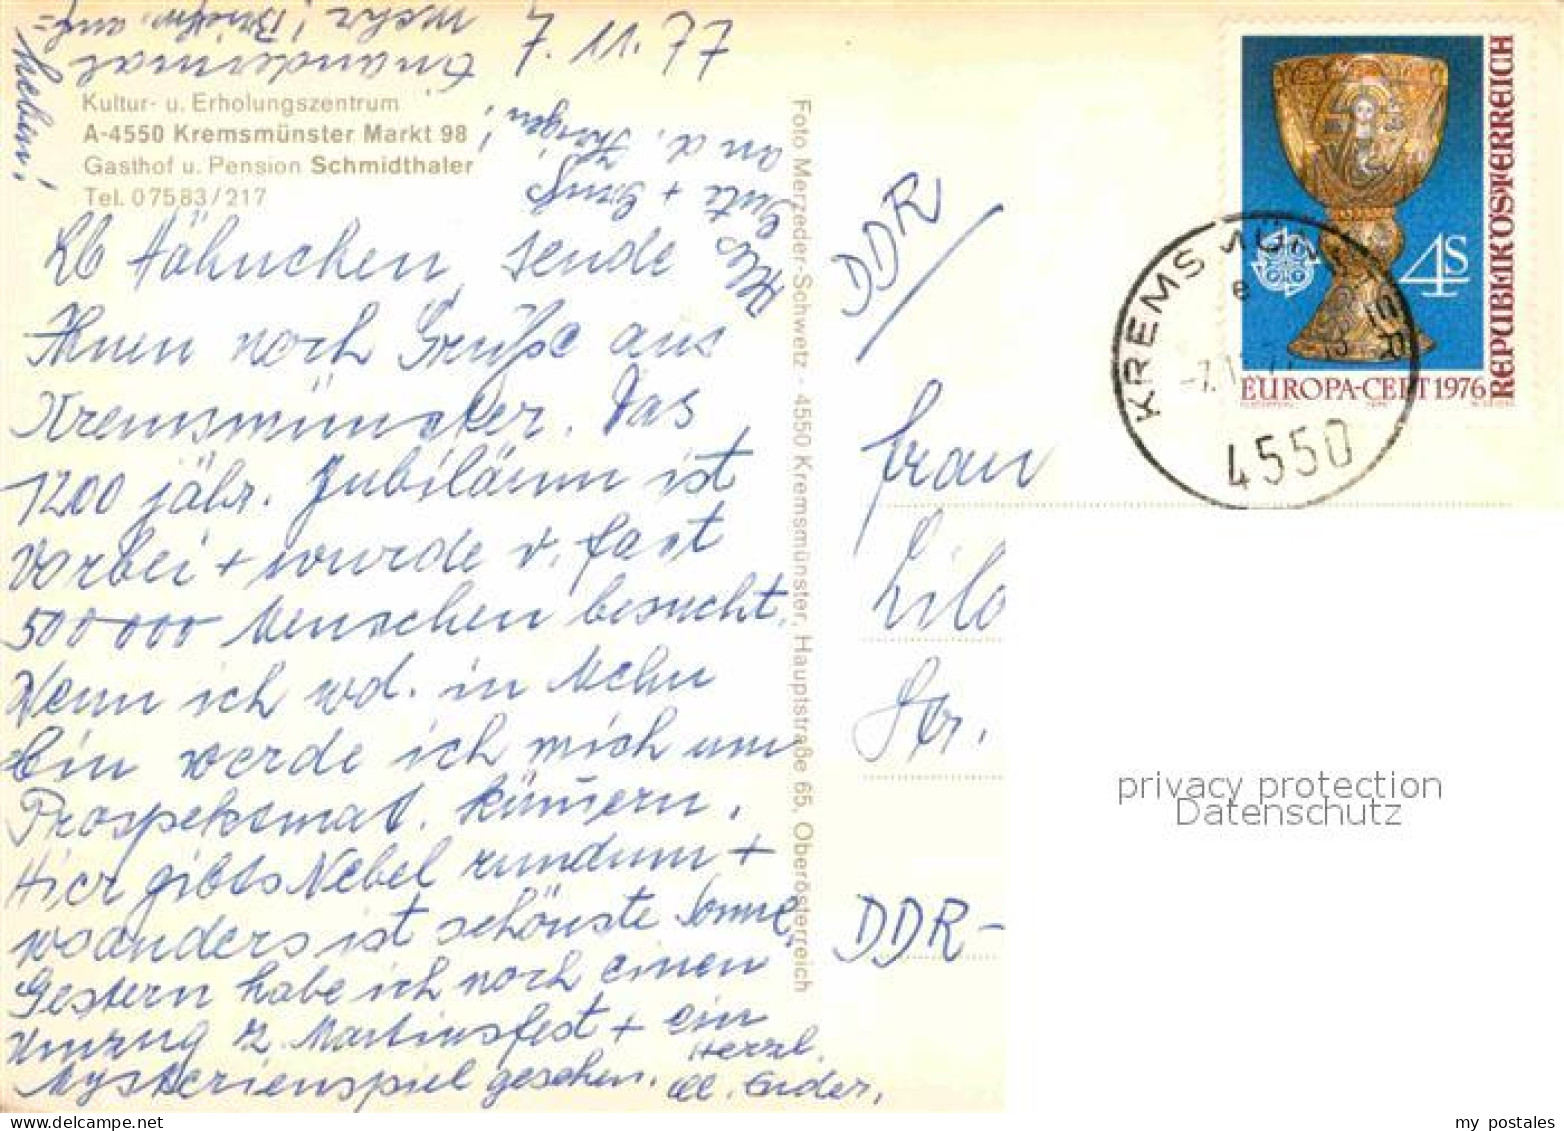 7. 11. 77
Kultur- u. Erholungszentrum
A-4550 Kremsmünster Markt 98
Gasthof u. Pension Schmidthaler
Tel. 07583/217
Lb Hähnchen, sende
Ihnen noch Grüße aus
Kremsmünster. Das
1200 jähr. Jubiläum ist
vorbei + wurde v. fast
500 000 Menschen besucht.
Wenn ich wd. in Mchn
bin werde ich mich um
Prospektmat. kümern.
Hier gibts Nebel rundum +
woanders ist schönste Sonne.
Gestern habe ich noch einen
Umzug z. Martinsfest + ein
Mysterienspiel gesehen.
Herzl.
Alles
Gute + Gruß
an d.
einandermal
mehr! Briefm. auf-
heben!
Foto Merzeder-Schwetz - 4550 Kremsmünster, Hauptstraße 65, Oberösterreich
DDR
Frau
Lilo
DDR-
REPUBLIK ÖSTERREICH
4S
EUROPA-CEPT 1976
KREMSMÜNSTER
e
-7.11.77
4550
privacy protection
Datenschutz
my postales